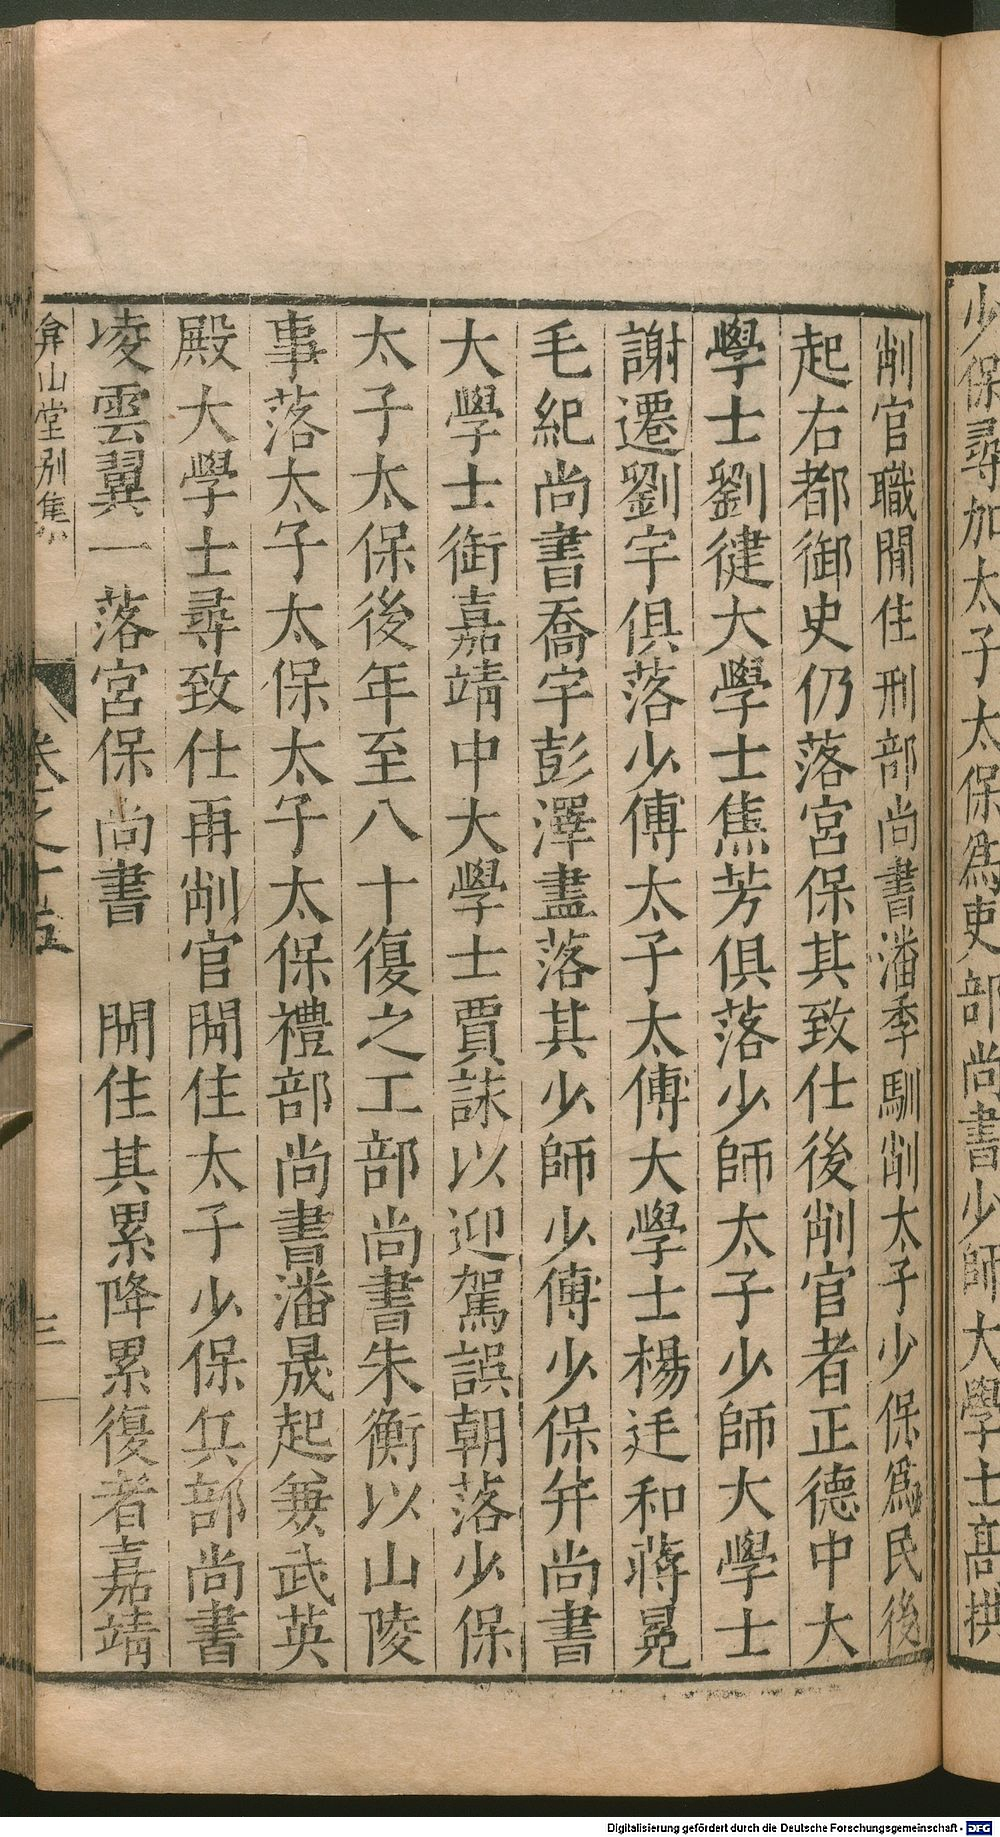 少保尋加太子太保爲吏部尚書少師大學士高拱
削官職閒住刑部尚書潘季馴削太子少保爲民後
起右都御史仍落宮保其致仕後削官者正德中大
學士劉健大學士焦芳俱落少師太子少師大學士
謝遷劉宇俱落少傅太子太傅大學士楊廷和蔣冕
毛紀尚書喬宇彭澤盡落其少師少傅少保并尚書
大學士銜嘉靖中大學士賈詠以迎駕誤朝落少保
太子太保後年至八十復之工部尚書朱衡以山陵
事落太子太保太子太保禮部尚書潘晟起兼武英
殿大學士尋致仕再削官閒住太子少保兵部尚書
凌雲翼一落宮保尚書　閒住其累降累復者嘉靖
弇山堂別集 卷之十五 三
Digitalisierung gefördert durch die Deutsche Forschungsgemeinschaft - DFG